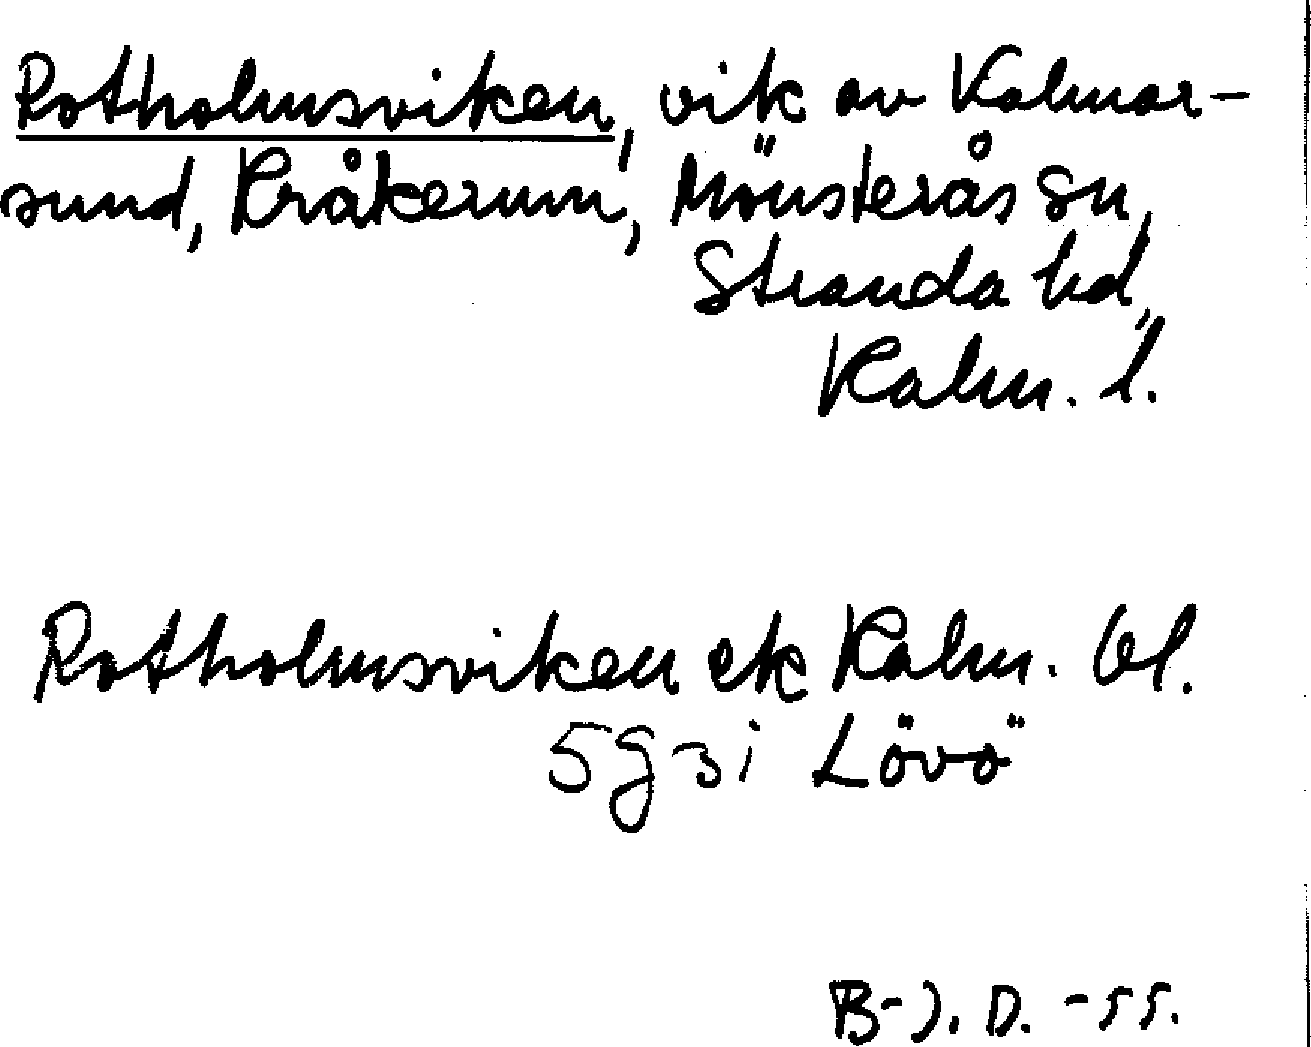 Rotholmsviken, vik av Kalmar-
sund, Kråkerum, Mönsterås sn,
Stranda hd,
Kalm. l.
Rotholmsviken ek Kalm. bl.
5g3i Lövö
B-J. D. -55.